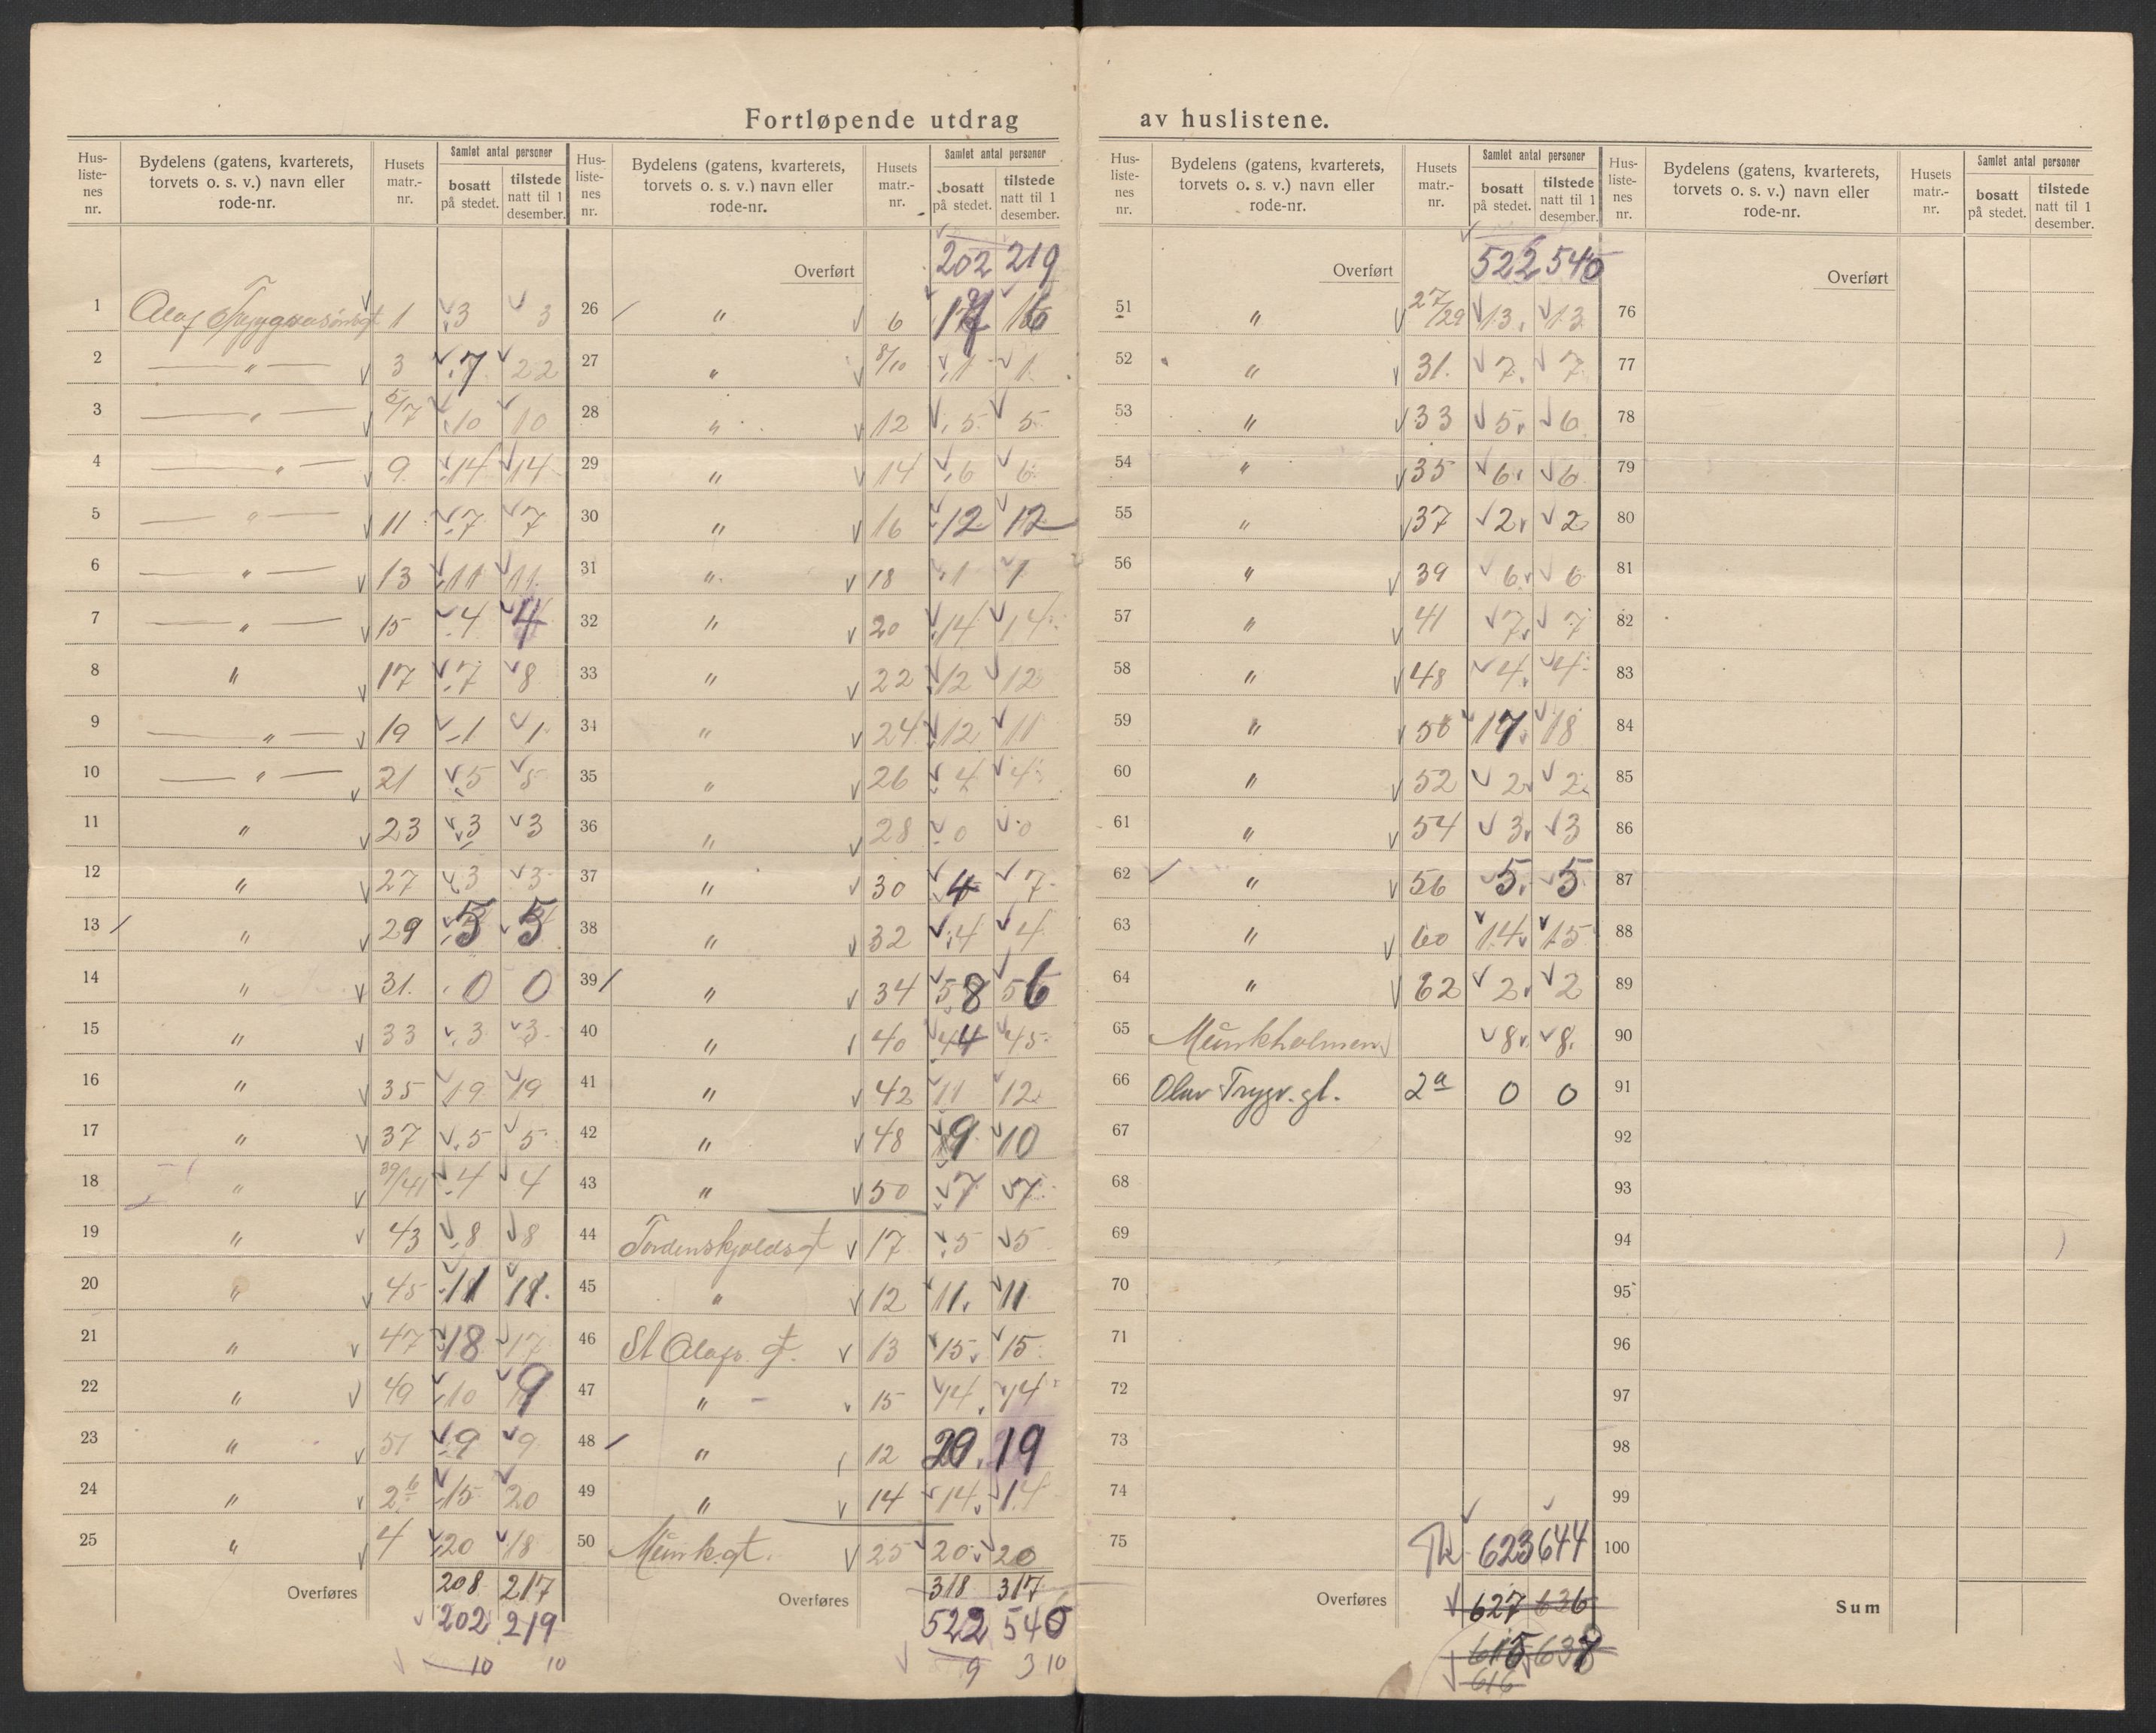 Fortløpende utdrag av huslistene.
Hus-liste-nes nr. | Bydelens (gatens, kvarterets, torvets o. s. v.) navn eller rode-nr. | Husets matr.-nr. | Samlet antal personer bosatt på stedet. | tilstede natt til 1 desember.
1 Olaf Tryggvasønsgt 1 3 3
2 — " — 3 7 22
3 — " — 5/7 10 10
4 — " — 9 14 14
5 — " — 11 7 7
6 — " — 13 11 11
7 — " — 15 4 4
8 " 17 7 8
9 — " — 19 1 1
10 — " — 21 5 5
11 " 23 3 3
12 " 27 3 3
13 " 29 5 5
14 " 31. 0 0
15 " 33 3 3
16 " 35 19 19
17 " 37 5 5
18 " 39/41 4 4
19 " 43 8 8
20 " 45 11 11.
21 " 47 18 17
22 " 49 10 9
23 " 51 9 9
24 " 2b 15 20
25 " 4 20 18
Overføres 208 217
202 219
10 10
Hus-liste-nes nr. | Bydelens (gatens, kvarterets, torvets o. s. v.) navn eller rode-nr. | Husets matr.-nr. | Samlet antal personer bosatt på stedet. | tilstede natt til 1 desember.
Overført 202 219
26 " 6 17 16
27 " 8/10 1 1
28 " 12 5 5
29 " 14 6 6
30 " 16 12 12
31 " 18 1 1
32 " 20 14 14
33 " 22 12 12
34 " 24 12 11
35 " 26 4 4
36 " 28 0 0
37 " 30 4 7
38 " 32 4 4
39 " 34 58 56
40 " 40 44 45
41 " 42 11 12
42 " 48 9 10
43 " 50 7 7
44 Tordenskjoldsgt 17 5 5
45 " 12 11 11
46 St Olafs gt. 13 15 15
47 " 15 14 14
48 " 12 20 19
49 " 14 14 14
50 Munkgt. 25 20 20
Overføres 318 317
522 540
9 3 10
Hus-liste-nes nr. | Bydelens (gatens, kvarterets, torvets o. s. v.) navn eller rode-nr. | Husets matr.-nr. | Samlet antal personer bosatt på stedet. | tilstede natt til 1 desember.
Overført 522 540
51 " 27/29 13 13
52 " 31. 7 7
53 " 33 5 6
54 " 35 6 6
55 " 37 2 2
56 " 39 6 6
57 " 41 7 7
58 " 48 4 4
59 " 50 17 18
60 " 52 2 2
61 " 54 3 3
62 " 56 5 5
63 " 60 14 15
64 " 62 2 2
65 Munkholmen 8 8
66 Olav Trygv. gt. 2a 0 0
67
68
69
70
71
72
73
74
75 623 644
Overføres 627 636
615 638
616
Hus-liste-nes nr. | Bydelens (gatens, kvarterets, torvets o. s. v.) navn eller rode-nr. | Husets matr.-nr. | Samlet antal personer bosatt på stedet. | tilstede natt til 1 desember.
Overført
76
77
78
79
80
81
82
83
84
85
86
87
88
89
90
91
92
93
94
95
96
97
98
99
100
Sum